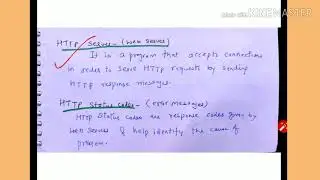 Made with KINEMASTER
HTTP Server - (Web Server)
It is a program that accepts connections
in order to serve HTTP requests by sending
HTTP response messages.
HTTP Status codes - (error messages)
HTTP status codes are response codes given by
web servers & help identify the cause of
problem.